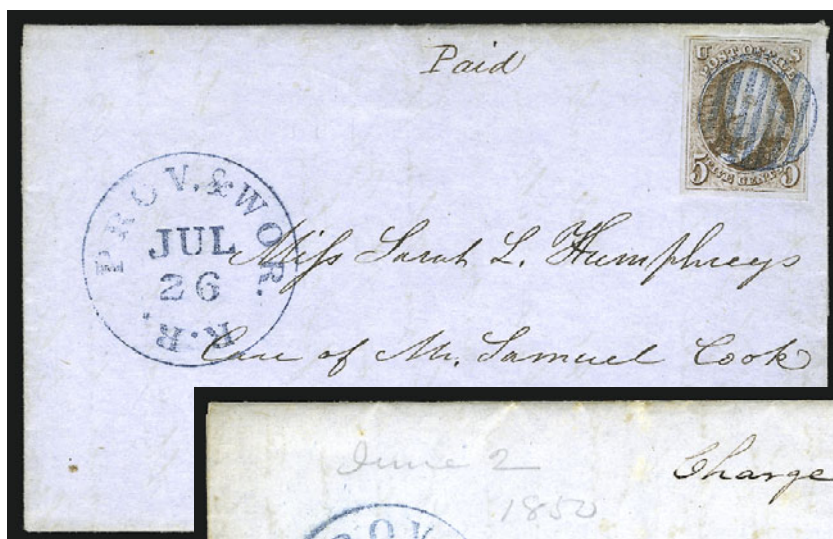 Paid
U S
POST OFFICE
FIVE CENTS
5 5
PROV. & WOR. R.R.
JUL
26
Miss Sarah L. Humphreys
Care of Mr. Samuel Cook
June 2
1850
Charge
ROV